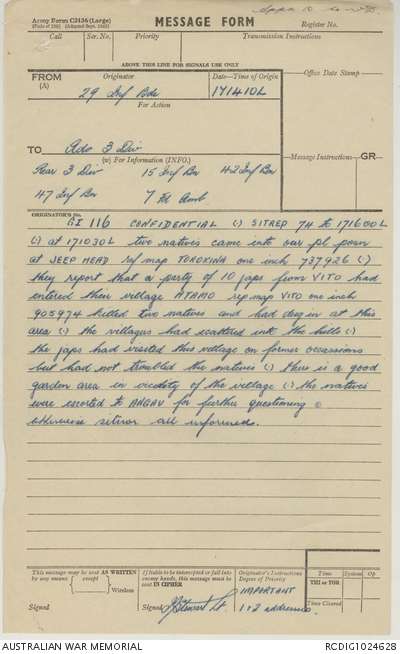 Appx D
Army Form C2136 (Large)
MESSAGE FORM
Register No.
Call
Ser. No.
Priority
Transmission Instructions
ABOVE THIS LINE FOR SIGNALS USE ONLY
FROM
(A)
Originator
Date—Time of Origin
Office Date Stamp
29 Inf Bde
171410L
For Action
TO
Adv 3 Div
(w) For Information (INFO.)
Message Instructions
GR
Rear 3 Div 15 Inf Bn 42 Inf Bn
47 Inf Bn 7 Fd Amb
ORIGINATOR'S No.
GI 116 CONFIDENTIAL (.) SITREP 74 to 171600L
(.) at 171030L two natives came into our pl posn
at JEEP HEAD ref map TOROKINA one inch 737926 (.)
they report that a party of 10 japs from VITO had
entered their village ATAMO ref map VITO one inch
905974 killed two natives and had dug in at this
area (.) the villagers had scattered into the hills (.)
the japs had visited this village on former occassions
but had not troubled the natives (.) there is a good
garden area in vicinity of the village (.) the natives
were escorted to ANGAU for further questioning
otherwise sitnor all informed.
This message may be sent AS WRITTEN
by any means (except) Wireless
Signed
If liable to be intercepted or fall into
enemy hands, this message must be
sent IN CIPHER
Signed JStewart Lt.
Originator's Instructions
Degree of Priority
IMPORTANT
1+2 addresses
Time
System
Op
THI or TOR
Time Cleared
AUSTRALIAN WAR MEMORIAL
RCDIG1024628